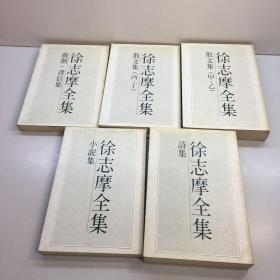 徐志摩全集
戲劇·書信集
徐志摩全集
散文集(丙·丁)
徐志摩全集
散文集(甲·乙)
徐志摩全集
小說集
徐志摩全集
詩集